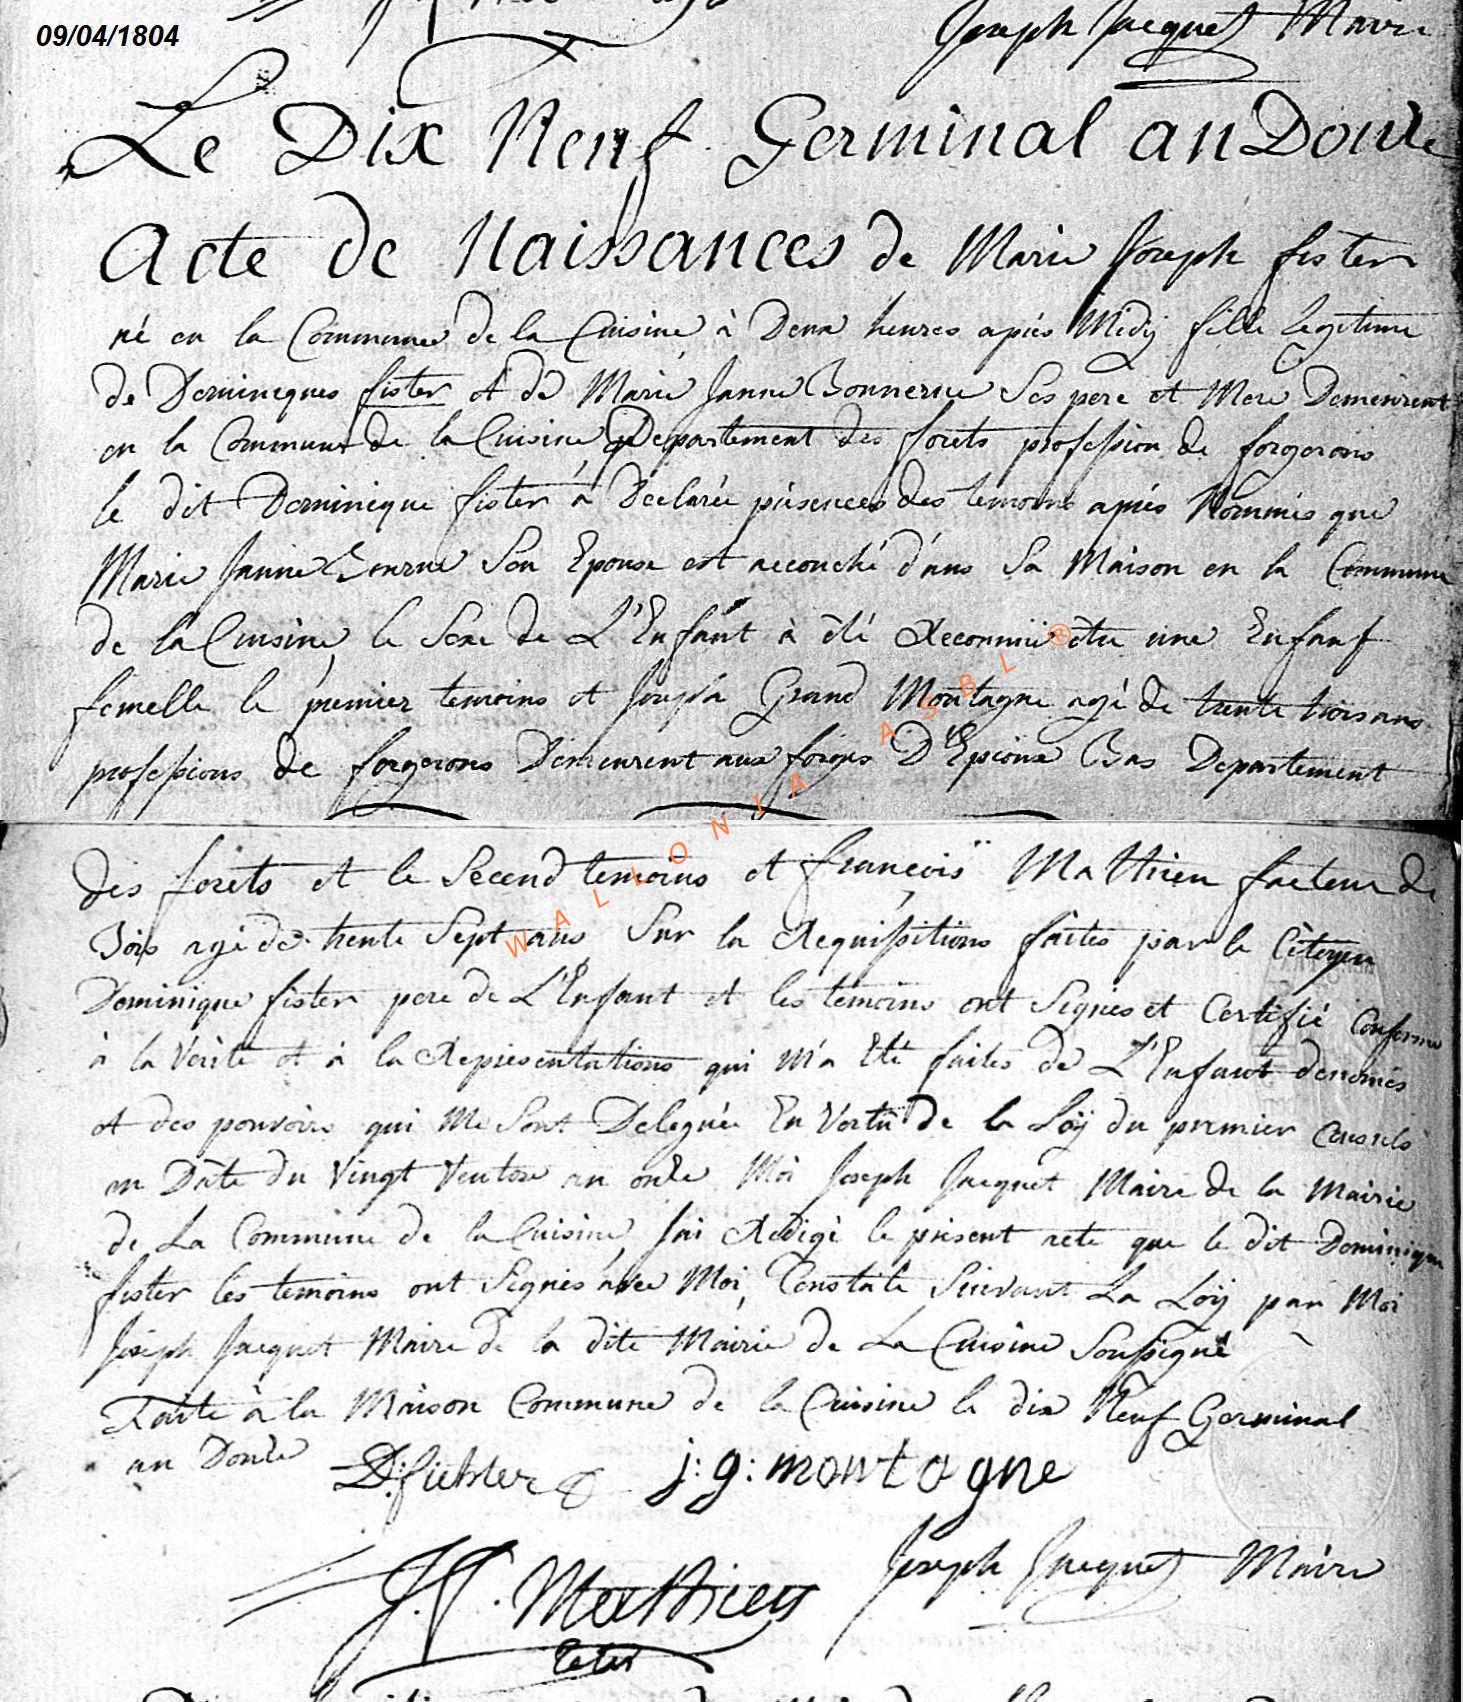 09/04/1804
Joseph Jacquet Maire
Le Dix Neuf Germinal an Douze
Acte de Naissances de Marie Joseph fister
né en la Commune de la Cuisine à Deux heures apiés Midÿ fille légitime
de Domineques fister et de Marie Janne Bonnerue Ses pere et Mere Demeurent
en la Commune de la Cuisine Departement des forets profession de forgerons
le dit Dominique fister à Declarée présences des temoins apiés Nommés que
Marie Janne Son Epouse est accouché d'ans Sa Maison en la Commune
de la Cuisine le Sexe de L'Enfant à été Reconnüe etre une Enfant
femelle le premier temoins et Joseph Grand Montagne agé de trente trois ans
professions de forgerons Demeurent aux forges D'Epioux Bas Departement
des forets et le Second temoins et françois Mathieu facteur de
Bois agé de trente Sept ans Sur la Requisitions faites par le Citoyen
Dominique fister pere de L'Enfant et les temoins ont Signés et Certifié Conforme
à la Vérité et à la Representations qui M'a Eté faites de L'Enfant denomés
et des pouvoirs qui Me Sont Delegués En Vertu de la Loÿ du premier Consuls
en Date du Vingt Ventose an onze Moi Joseph Jacquet Maire de la Mairie
de La Commune de la Cuisine Jai Redigé le présent acte que le dit Dominique
fister les temoins ont Signés avec Moi, Constaté Suivant La Loÿ par Moi
Joseph Jacquet Maire de la dite Mairie de La Cuisine Soussigné
Faite à la Maison Commune de la Cuisine le dix Neuf Germinal
an Douze D: fichter j: g: montagne
J. f. Mathieu Joseph Jacquet Maire
WALLONIA ASBL ®